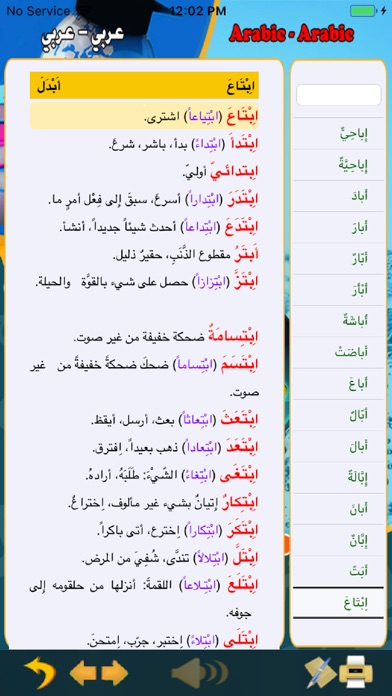 No Service 12:02 PM
عربي - عربي
Arabic - Arabic
اِبْتَاعَ أَبْدَلَ
اِبْتَاعَ (ابْتِياعاً) اشترى.
اِبْتَدأَ (ابْتِداءً) بدأ، باشر، شرعَ.
اِبْتدائـيّ أوليّ.
اِبْتَدَرَ (ابْتِداراً) أسرعَ، سبقَ إلى فِعْل أمرٍ ما.
اِبْتَدَعَ (ابْتِداعاً) أحدث شيئاً جديداً، أنشأ.
أَبتَرُ مقطوع الذَّنَبِ، حقيرٌ ذليل.
اِبْتَزَّ (ابْتِزازاً) حصل على شيء بالقوَّة والحيلة.
اِبْتِسامَةُ ضحكة خفيفة من غير صوت.
اِبْتَسَمَ (ابْتِساماً) ضحكَ ضحكةً خفيفةً من غير
صوت.
اِبْتَعَثَ (ابْتِعاثاً) بعث، أرسل، أيقظ.
اِبْتَعَدَ (ابْتِعاداً) ذهب بعيداً، اِفترق.
اِبْتَغَى (ابْتِغاءً) الشَّيْءَ: طَلَبَهُ، أرادهُ.
اِبْتِكارٌ إتيانٌ بشيء غير مألوف، اِختراعٌ.
اِبْتَكَرَ (ابْتِكاراً) اِخترع، أتى باكراً.
اِبْتَلَّ (ابْتِلالاً) تندَّى، شُفِيَ من المرض.
اِبْتَلَعَ (ابْتِلاعاً) اللقمةَ: أنزلها من حلقومه إلى
جوفه.
اِبْتَلَى (ابْتِلاءً) اِختبر، جرّب، اِمتحنَ.
إباحِيٌّ
إباحِيَّةٌ
أبادَ
أبارَ
أبّارٌ
أبْأرَ
أباشَةٌ
أباضَتْ
أباعَ
أبّالٌ
أبالَ
إبّالَةٌ
أبانَ
إبَّانٌ
أبَتَ
اِبْتَاعَ